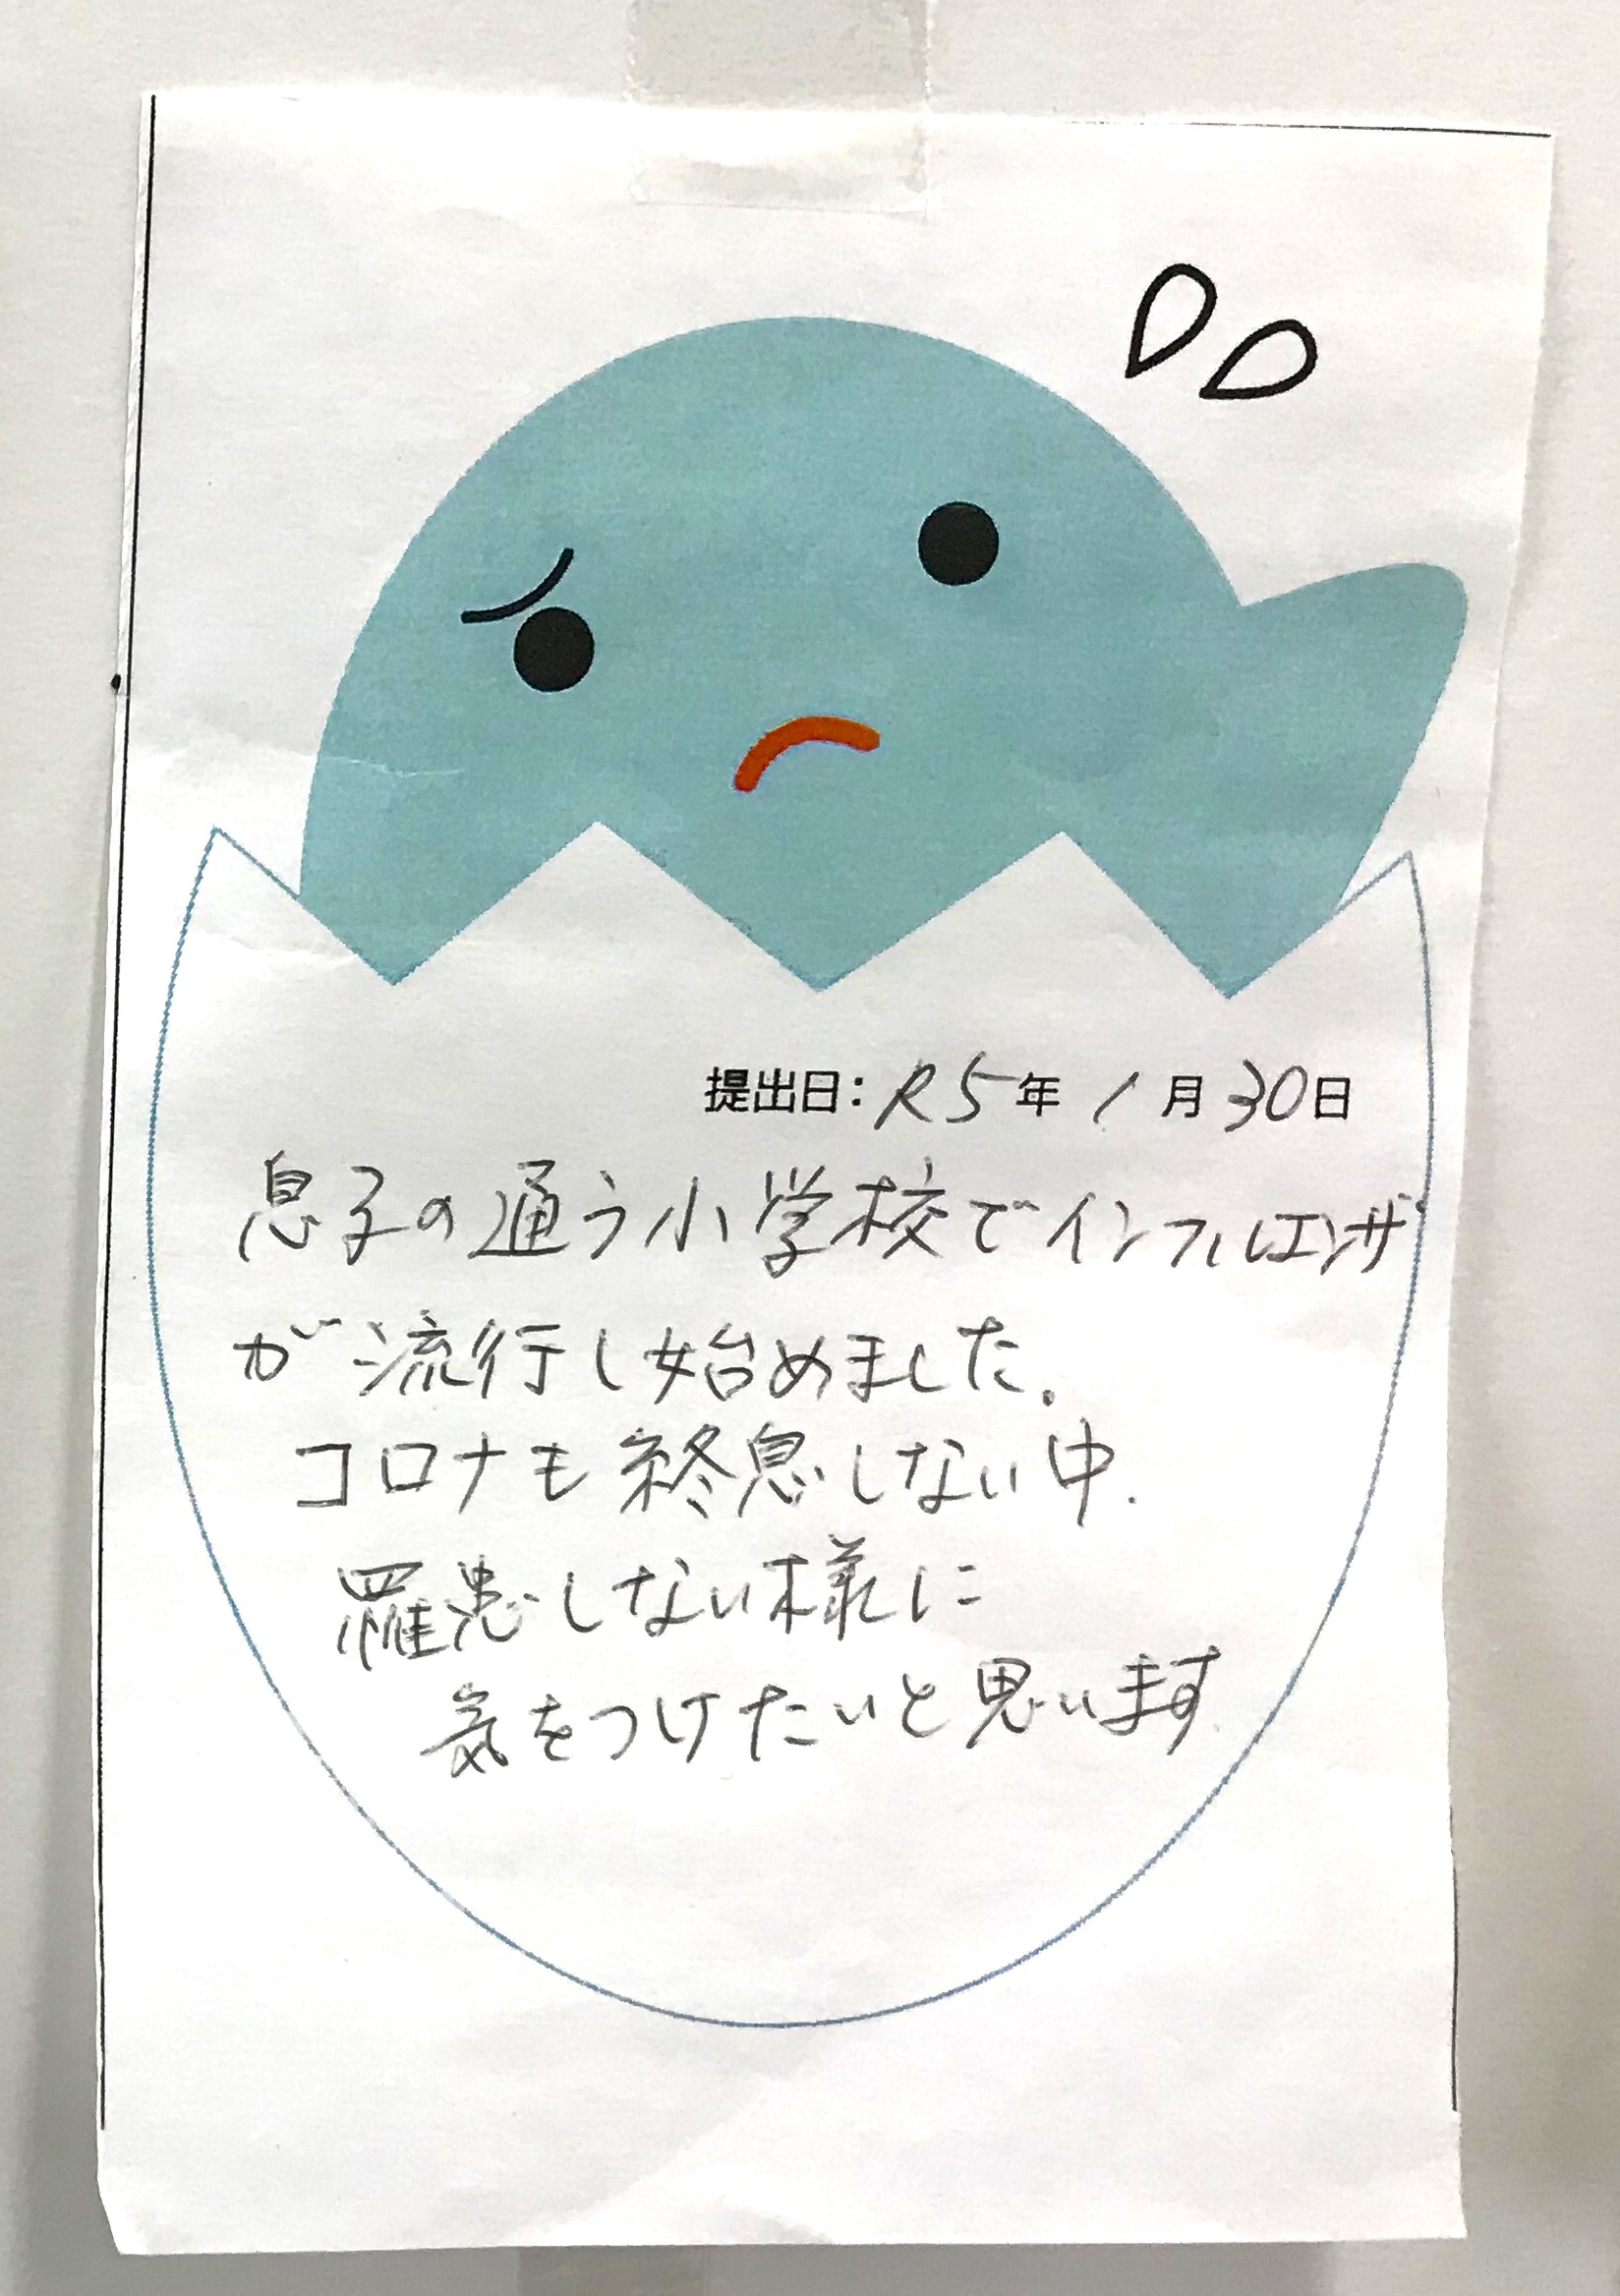 提出日：R5年1月30日
息子の通う小学校でインフルエンザ
が流行し始めました.
コロナも終息しない中.
罹患しない様に
気をつけたいと思います.